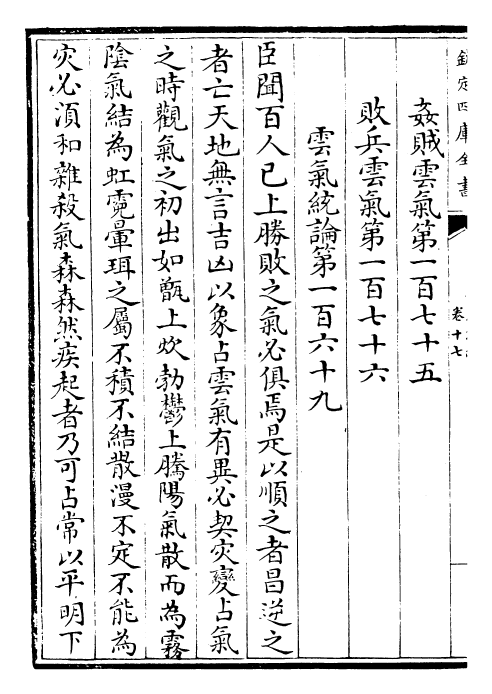 欽定四庫全書
卷十七
姦賊雲氣第一百七十五
敗兵雲氣第一百七十六
雲氣統論第一百六十九
臣聞百人已上勝敗之氣必俱焉是以順之者昌逆之
者亡天地無言吉凶以象占雲氣有異必契灾變占氣
之時觀氣之初出如甑上炊勃鬱上騰陽氣散而為霧
陰氣結為虹霓暈珥之屬不積不結散漫不定不能為
灾必湏和雜殺氣森森然疾起者乃可占常以平明下